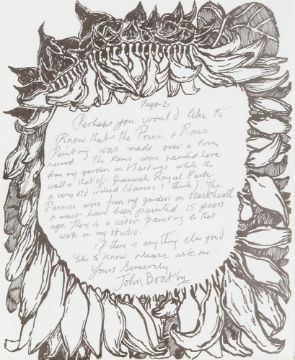 Page 2
Perhaps you would like to
know that the Peonies & Roses
Paint was made over a
period. The Roses were
from my garden in Hastings while the
wall is that of Greenwich Royal Park
a very old wall (I think). The
Paeonies were from my garden on Blackheath
& must have been painted 15 years
ago. There is a sister painting to that
work in my studio.
If there is anything else you'd
like to know please ask me.
Yours Sincerely
John Bratby